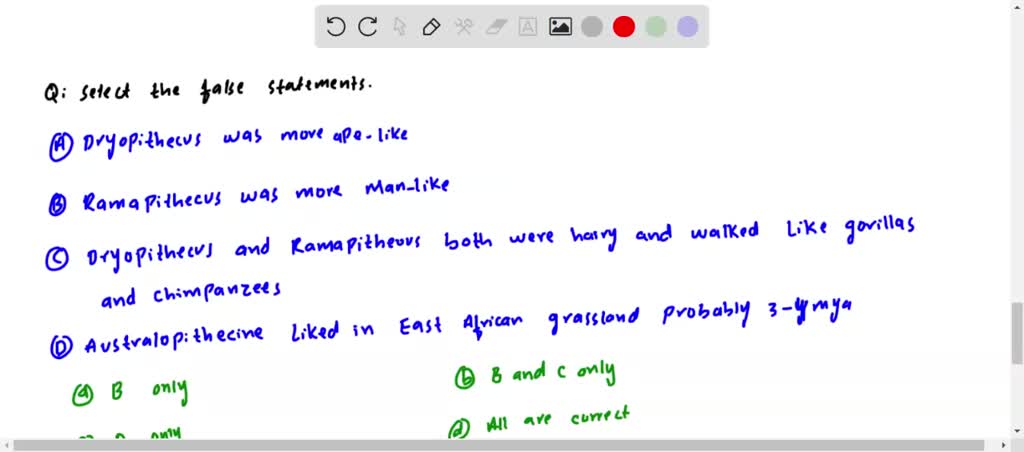 Q: select the false statements.
Ⓐ Dryopithecus was more ape-like
Ⓑ Ramapithecus was more Man-like
Ⓒ Dryopithecus and Ramapithevus both were hairy and walked like gorillas
and chimpanzees
Ⓓ Australopithecine liked in East African grassland probably 3-4mya
ⓐ B only
ⓑ B and C only
only
ⓓ All are correct